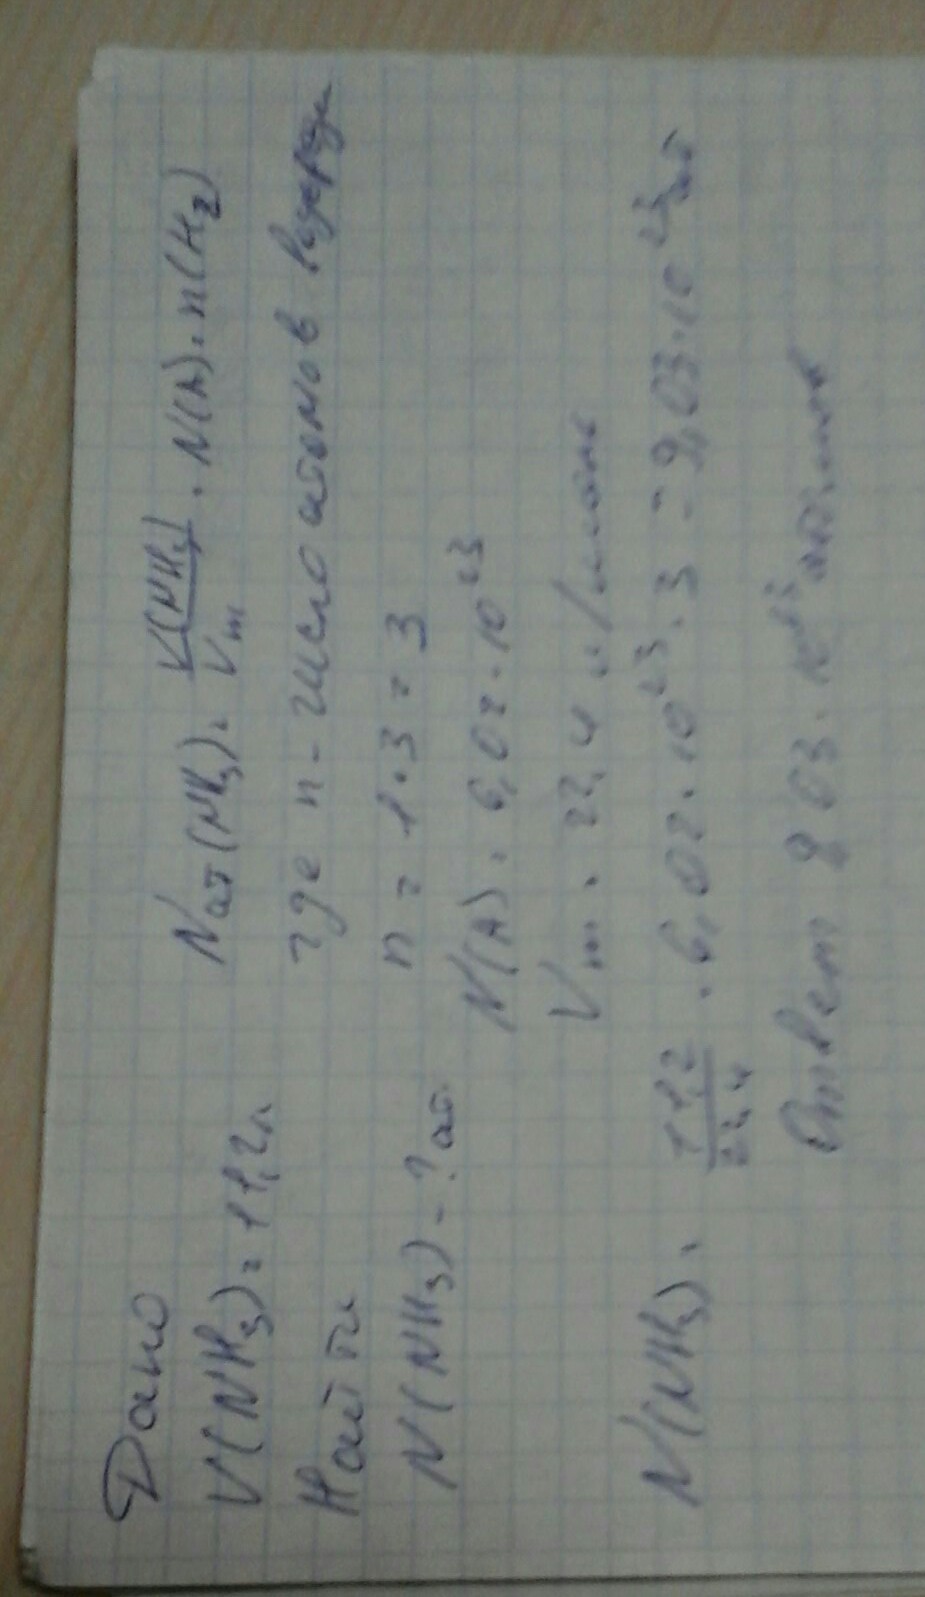 Дано
V(NH3) = 11,2л
Найти
N(NH3) - ? ат.
Nат(NH3) = V(NH3)/Vm · N(A) · n(H2)
где n - число атомов
n = 1 · 3 = 3
N(A) = 6,02 · 10^23
Vm = 22,4 л/моль
N(NH3) = 11,2/22,4 · 6,02 · 10^23 · 3 = 9,03 · 10^23 ат
Ответ 9 03 · 10^23